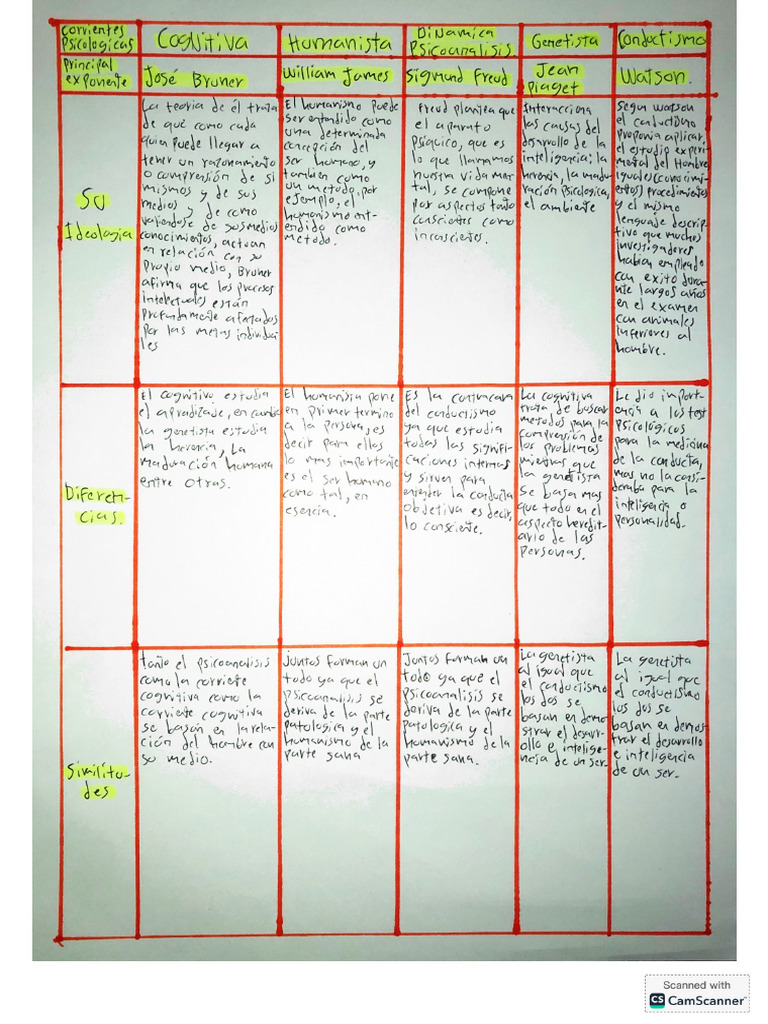 corrientes
Psicologicas
Cognitiva
Humanista
Dinamica
Psicoanalisis
Genetista
Conductismo
Principal
exponente
José Bruner
William James
Sigmund Freud
Jean
Piaget
Watson.
Su
Ideologia
La teoria de él trata
de qué como cada
quien puede llegar a
tener un razonamiento
o comprensión de si
mismos y de sus
medios y de como
valiendose de sus medios
conocimientos, actuan
en relación con su
propio medio, Bruner
afirma que los procesos
intelectuales están
profundamente afectados
por las metas individua
les
El humanismo puede
ser entendido como
una determinada
concepción del
ser humano, y
tambien como
un metodo, por
ejemplo, el
humanismo ent-
endido como
metodo.
Freud plantea que
el aparato
psíquico, que es
lo que llamamos
nuestra vida men
tal, se compone
por aspectos tanto
conscientes como
inconscientes.
Interacciona
las causas del
desarrollo de la
inteligencia; la
herencia, la madu-
ración psicologica,
el ambiente
Segun watson
el conductismo
proponia aplicar,
el estudio experi
mental del Hombre
iguales (conocimi-
entos) procedimientos
y el mismo
lenguaje descrip-
tivo que muchos
investigadores
habian empleado
con exito dura-
nte largos años
en el examen
con animales
inferiores al
hombre.
Diferen-
cias.
El cognitivo estudia
el aprendizaje, en cambio
la genetista estudia
la herencia, La
maduración humana
entre otras.
El humanista pone
en primer termino
a la persona, es
decir para ellos
lo mas importante
es el ser humano
como tal, en
esencia.
Es la contracara
del conductismo
ya que estudia
todas las signifi-
caciones internas
y sirven para
entender la conducta
objetiva es decir,
lo consciente.
La cognitiva
trata de buscar
metodos para la
comprensión de
los problemas
mientras que
la genetista
se basa mas
que todo en el
aspecto heredit-
ario de las
personas.
Le dio import-
encia a los test
psicológicos
para la medicina
de la conducta,
mas no la consi-
deraba para la
inteligencia o
personalidad.
Similitu-
des
tanto el psicoanalisis
como la corriente
cognitiva como la
corriente cognitiva
se basan en la rela-
ción del hombre con
su medio.
juntos forman un
todo ya que el
psicoanalisis se
deriva de la parte
patologica y el
humanismo de la
parte sana
Juntos forman un
todo ya que el
psicoanalisis se
deriva de la parte
patologica y el
humanismo de la
parte sana.
La genetista
al igual que
el conductismo
los dos se
basan en demo-
strar el desarr-
ollo e intelige-
ncia de un ser.
La genetista
al igual que
el conductismo
los dos se
basan en demos-
trar el desarrollo
e inteligencia
de un ser.
Scanned with
CS CamScanner